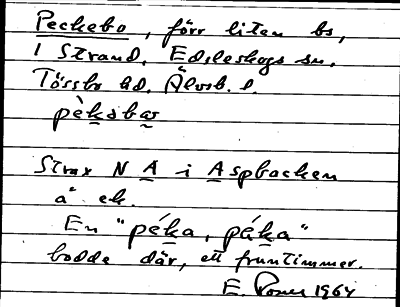 Peckebo, förr liten bs,
i Strand, Edsleskogs sn,
Tössbo hd, Älvsb. l.
pèkabo
Strax N A i Aspbacken
å ek.
En "péka, péka"
bodde där, ett fruntimmer.
E. 1964